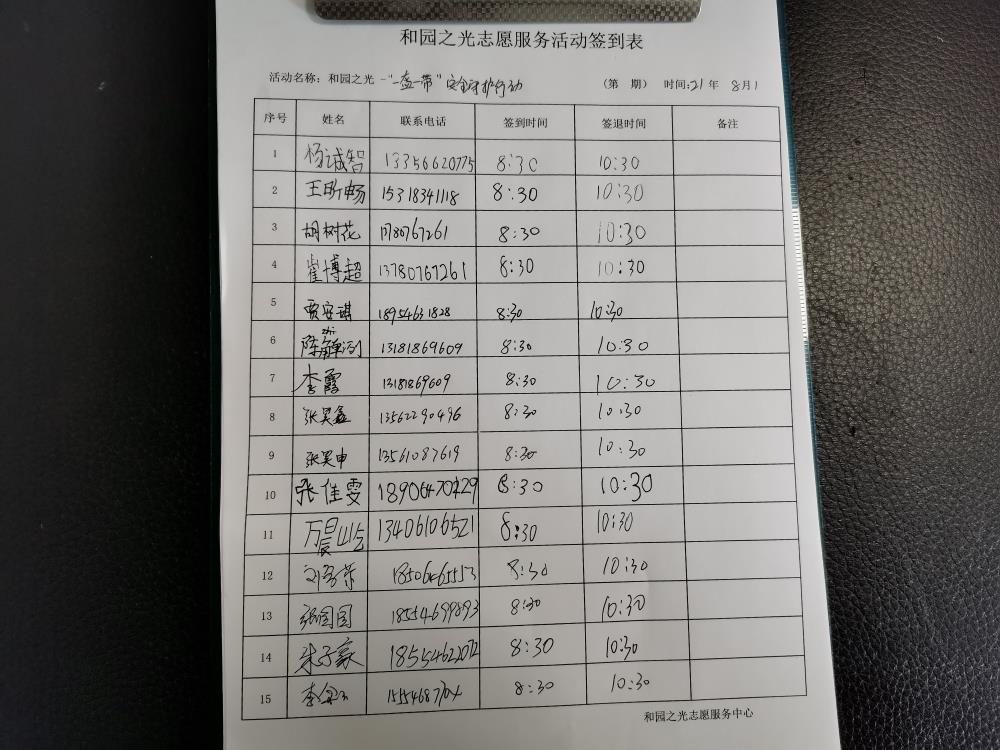 和园之光志愿服务活动签到表
活动名称：和园之光-"一盔一带"安全守护行动 （第 期） 时间:21年 8月1
序号 姓名 联系电话 签到时间 签退时间 备注
1 杨诚智 13356620775 8:30 10:30
2 王昕畅 15318341118 8:30 10:30
3 胡树花 1780767261 8:30 10:30
4 崔博超 13780767261 8:30 10:30
5 贾安琪 18954631828 8:30 10:30
6 13181869609 8:30 10:30
7 李霞 13181869609 8:30 10:30
8 张昊鑫 13562290496 8:30 10:30
9 张昊申 13561087619 8:30 10:30
10 张佳雯 18906470429 8:30 10:30
11 13406106521 8:30 10:30
12 18506465553 8:30 10:30
13 张园园 18554699893 8:30 10:30
14 朱子豪 18554622072 8:30 10:30
15 8:30 10:30
和园之光志愿服务中心